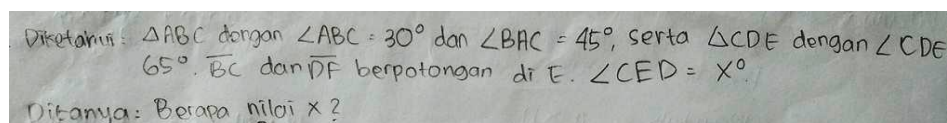 Diketahui: △ABC dengan ∠ABC = 30° dan ∠BAC = 45°, serta △CDE dengan ∠CDE
65°. BC dan DF berpotongan di E. ∠CED = X°.
Ditanya: Berapa nilai x?